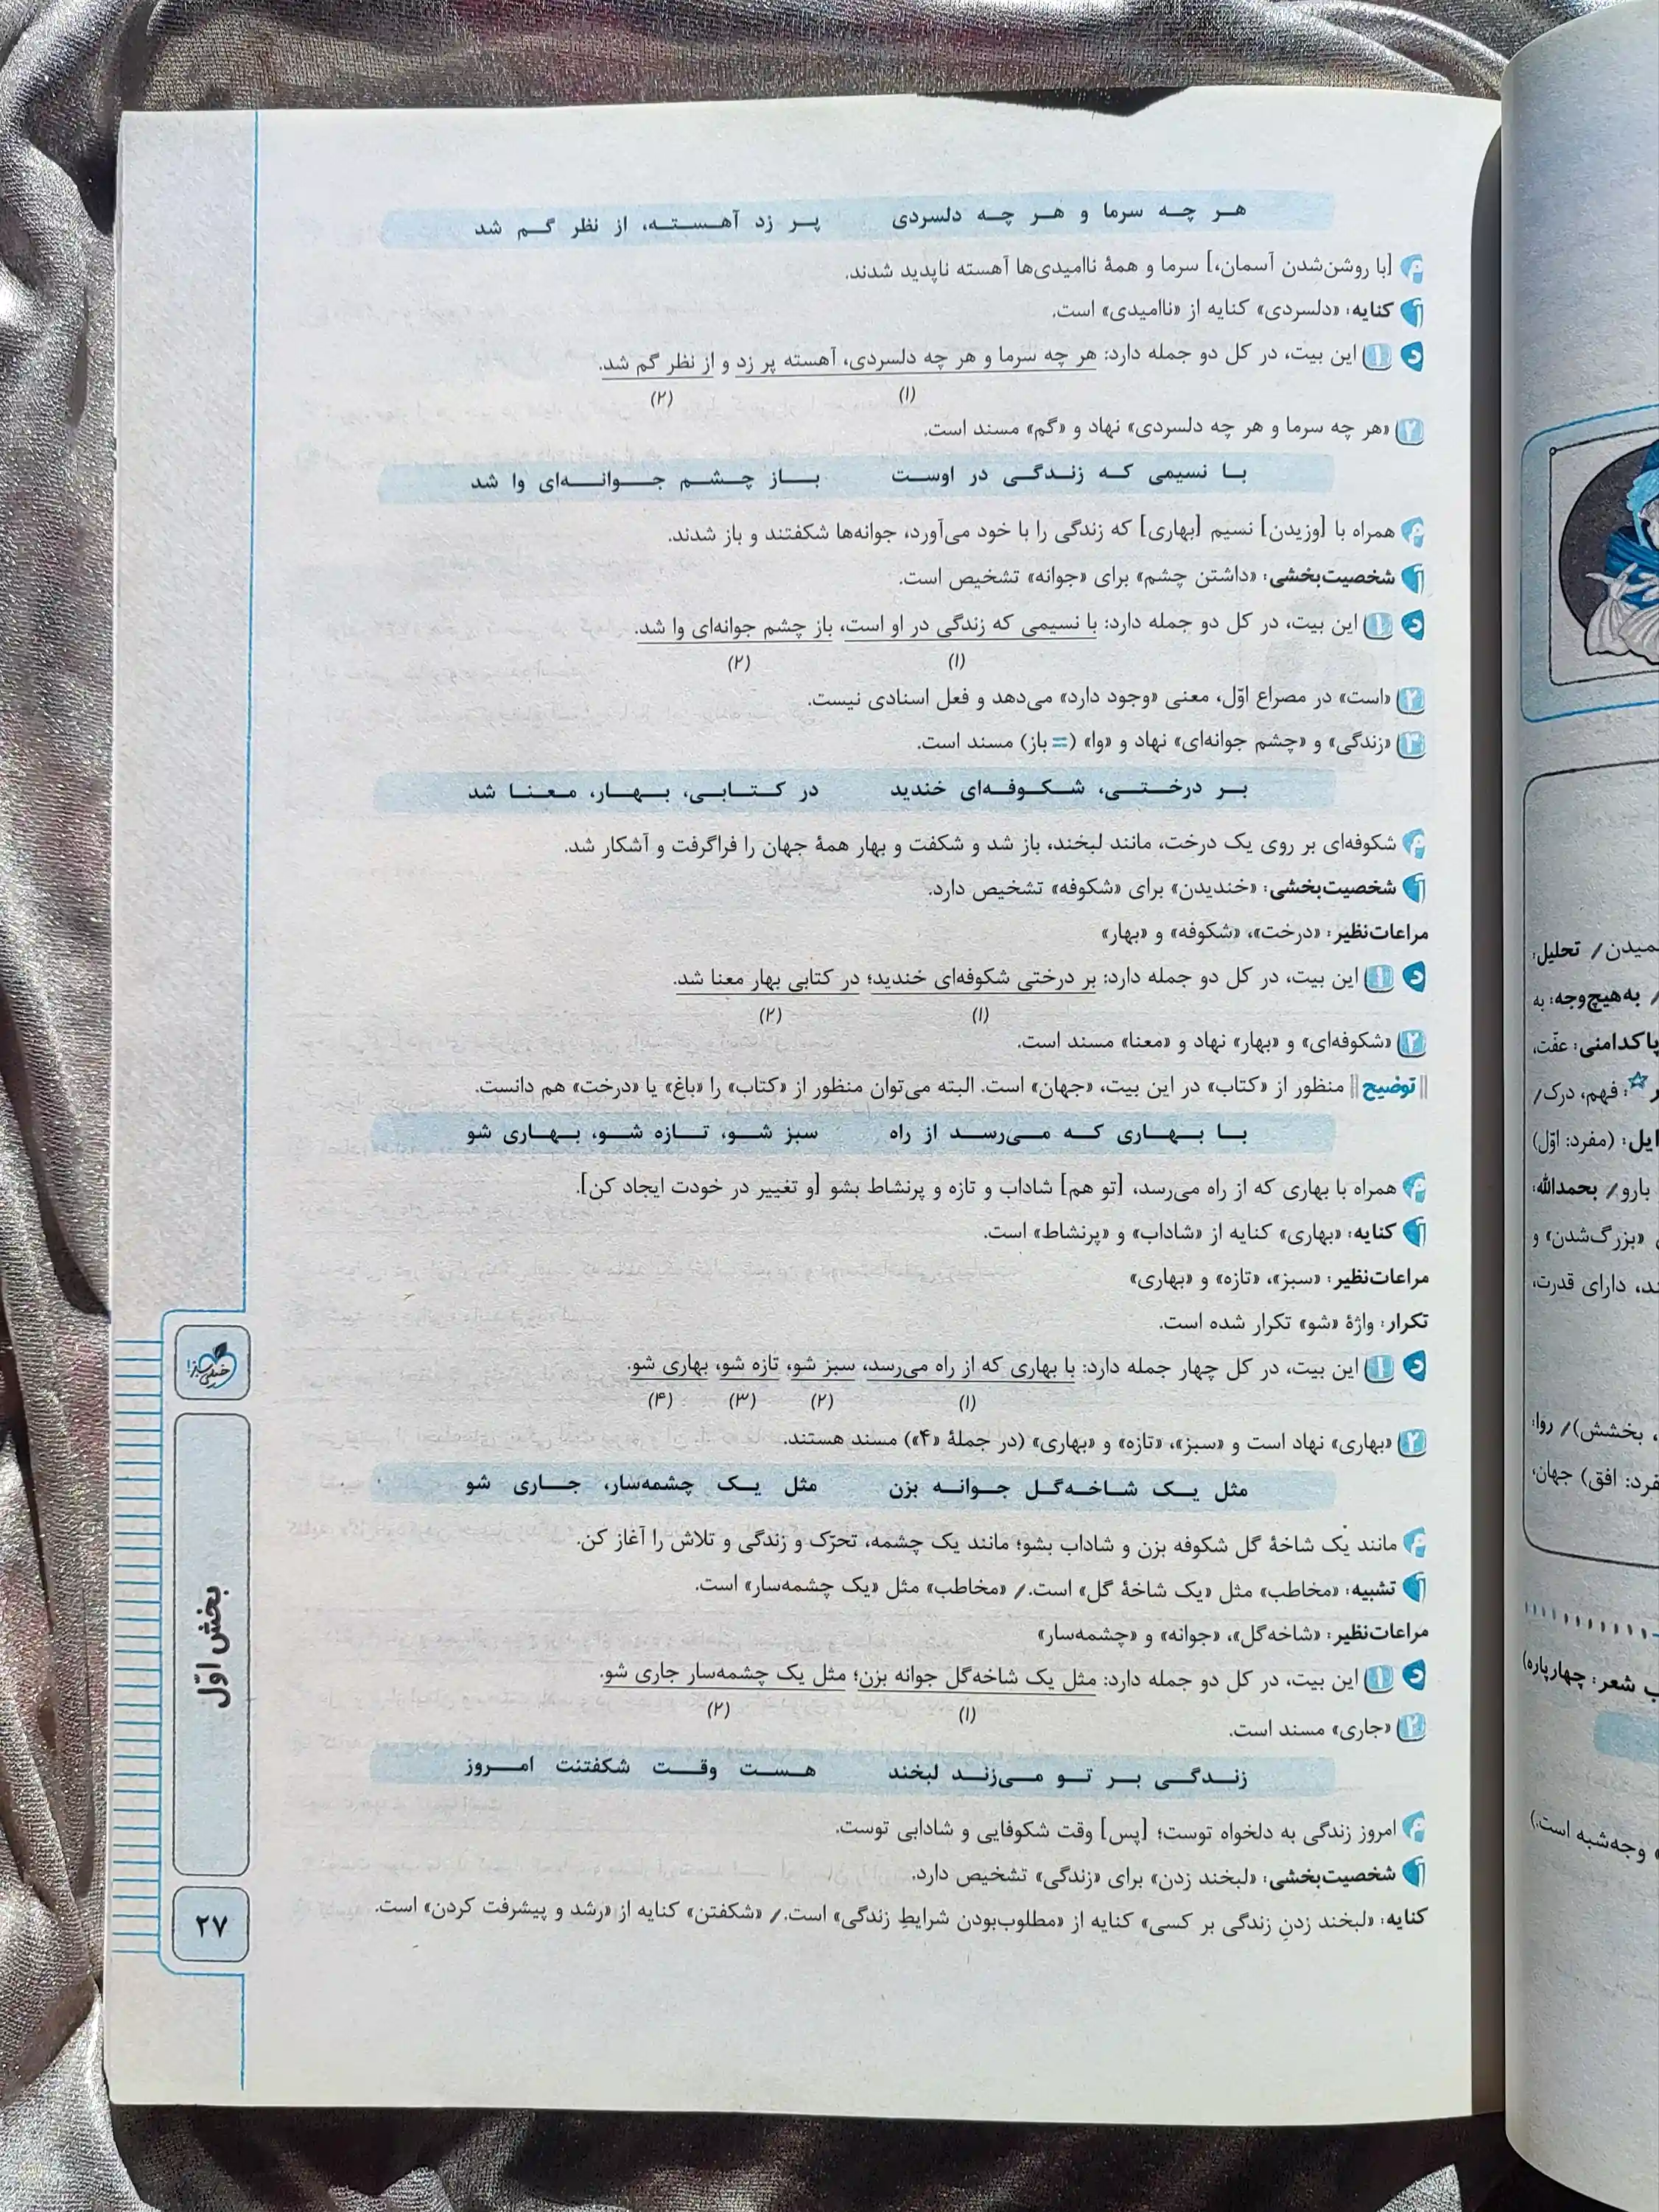 هر چه سرما و هر چه دلسردی پر زد آهسته، از نظر گم شد
م [با روشن‌شدن آسمان،] سرما و همهٔ ناامیدی‌ها آهسته ناپدید شدند.
آ کنایه: «دلسردی» کنایه از «ناامیدی» است.
د ۱ این بیت، در کل دو جمله دارد: هر چه سرما و هر چه دلسردی، آهسته پر زد و از نظر گم شد.
(۱) (۲)
۲ «هر چه سرما و هر چه دلسردی» نهاد و «گم» مسند است.
با نسیمی که زندگی در اوست باز چشم جوانه‌ای وا شد
م همراه با [وزیدن] نسیم [بهاری] که زندگی را با خود می‌آورد، جوانه‌ها شکفتند و باز شدند.
آ شخصیت‌بخشی: «داشتن چشم» برای «جوانه» تشخیص است.
د ۱ این بیت، در کل دو جمله دارد: با نسیمی که زندگی در او است، باز چشم جوانه‌ای وا شد.
(۱) (۲)
۲ «است» در مصراع اوّل، معنی «وجود دارد» می‌دهد و فعل اسنادی نیست.
۳ «زندگی» و «چشم جوانه‌ای» نهاد و «وا» (= باز) مسند است.
بر درختی، شکوفه‌ای خندید در کتابی، بهار، معنا شد
م شکوفه‌ای بر روی یک درخت، مانند لبخند، باز شد و شکفت و بهار همهٔ جهان را فراگرفت و آشکار شد.
آ شخصیت‌بخشی: «خندیدن» برای «شکوفه» تشخیص دارد.
مراعات‌نظیر: «درخت»، «شکوفه» و «بهار»
د ۱ این بیت، در کل دو جمله دارد: بر درختی شکوفه‌ای خندید؛ در کتابی بهار معنا شد.
(۱) (۲)
۲ «شکوفه‌ای» و «بهار» نهاد و «معنا» مسند است.
توضیح منظور از «کتاب» در این بیت، «جهان» است. البته می‌توان منظور از «کتاب» را «باغ» یا «درخت» هم دانست.
با بهاری که می‌رسد از راه سبز شو، تازه شو، بهاری شو
م همراه با بهاری که از راه می‌رسد، [تو هم] شاداب و تازه و پرنشاط بشو [و تغییر در خودت ایجاد کن].
آ کنایه: «بهاری» کنایه از «شاداب» و «پرنشاط» است.
مراعات‌نظیر: «سبز»، «تازه» و «بهاری»
تکرار: واژهٔ «شو» تکرار شده است.
د ۱ این بیت، در کل چهار جمله دارد: با بهاری که از راه می‌رسد، سبز شو، تازه شو، بهاری شو.
(۱) (۲) (۳) (۴)
۲ «بهاری» نهاد است و «سبز»، «تازه» و «بهاری» (در جملهٔ «۴») مسند هستند.
مثل یک شاخه‌گل جوانه بزن مثل یک چشمه‌سار، جاری شو
م مانند یک شاخهٔ گل شکوفه بزن و شاداب بشو؛ مانند یک چشمه، تحرّک و زندگی و تلاش را آغاز کن.
آ تشبیه: «مخاطب» مثل «یک شاخهٔ گل» است. / «مخاطب» مثل «یک چشمه‌سار» است.
مراعات‌نظیر: «شاخه‌گل»، «جوانه» و «چشمه‌سار»
د ۱ این بیت، در کل دو جمله دارد: مثل یک شاخه‌گل جوانه بزن؛ مثل یک چشمه‌سار جاری شو.
(۱) (۲)
۲ «جاری» مسند است.
زندگی بر تو می‌زند لبخند هست وقت شکفتنت امروز
م امروز زندگی به دلخواه توست؛ [پس] وقت شکوفایی و شادابی توست.
آ شخصیت‌بخشی: «لبخند زدن» برای «زندگی» تشخیص دارد.
کنایه: «لبخند زدنِ زندگی بر کسی» کنایه از «مطلوب‌بودن شرایطِ زندگی» است. / «شکفتن» کنایه از «رشد و پیشرفت کردن» است.
خیلی سبز!
بخش اوّل
۲۷
تحلیل:
/ به‌هیچ‌وجه: به
پاکدامنی: عفّت،
فهم، درک/
(مفرد: اوّل)
بارو/ بحمدالله:
«بزرگ‌شدن» و
دارای قدرت،
، بخشش)/ روا:
افق) جهان،
شعر: چهارپاره)
وجه‌شبه است.)